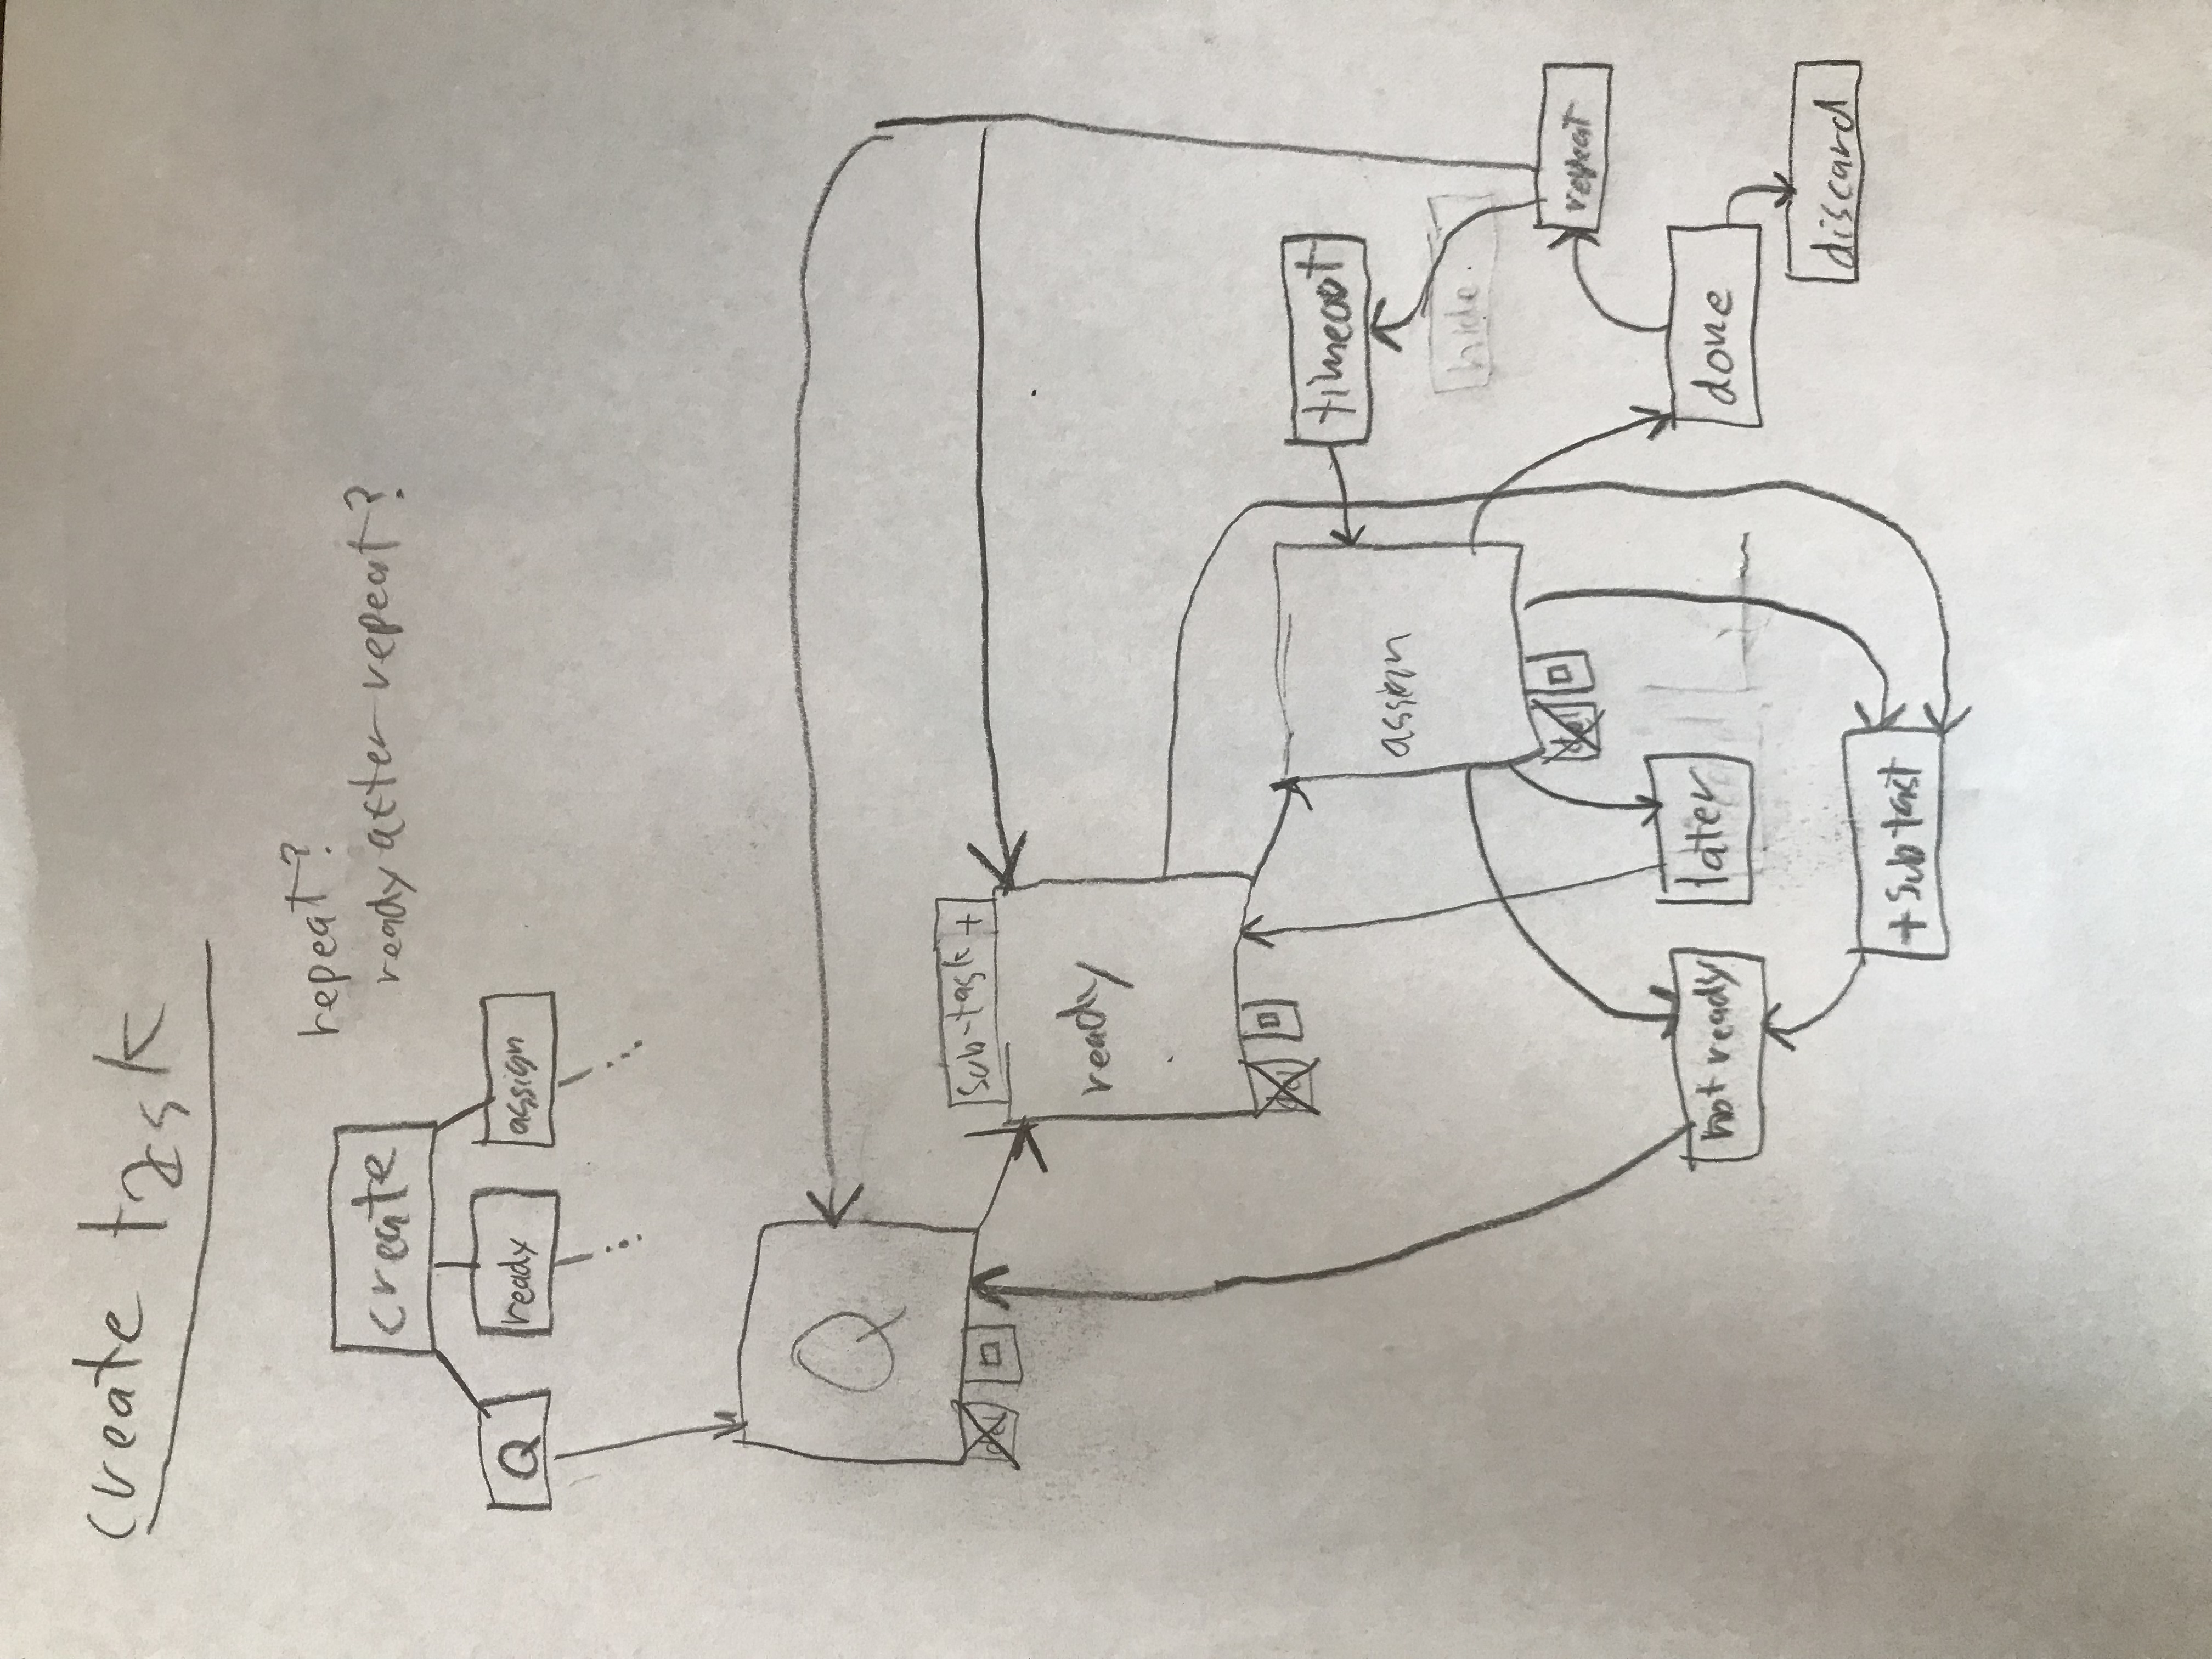 create task
repeat?
ready after repeat?
create
Q
ready
assign
Q
del
Sub-task +
ready
del
timeout
assign
hide
del
repeat
not ready
later
done
discard
+ Subtast